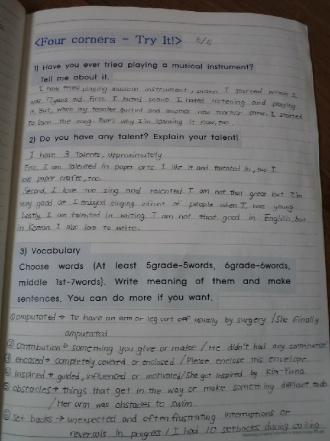 <Four corners - Try It!> 5/6
1) Have you ever tried playing a musical instrument?
Tell me about it.
I have tried playing musical instrument, piano. I started when I
was 7 years old. First I hated piano. I hated listening and playing
it. But, when my teacher quited and another new teacher came. I started
to love the song. That's why I'm learning it now, too.
2) Do you have any talent? Explain your talent!
I have 3 talents, approximately.
First, I am talented in paper arts. I like it and talented in, so I
love paper crafts, too.
Second, I love too sing and talented. I am not that great but I'm
very good at. I enjoyed singing infront of people when I was young.
Lastly, I am talented in writing. I am not that good in English, but
in Korean I also love to write.
3) Vocabulary
Choose words (At least 5grade-5words, 6grade-6words,
middle 1st-7words). Write meaning of them and make
sentences. You can do more if you want.
① amputated → to have an arm or leg cut off usually by surgery / She finally
amputated.
② contribution → something you give or make / He didn't had any contribution
③ encased → completely covered or enclosed / Please enclose this envelope.
④ inspired → guided, influenced or motivated / She got inspired by Kim Yuna.
⑤ obstacles → things that get in the way or make something difficult to do
/ Her arm was obstacles to swim.
⑥ set backs → unexpected and often frustrating interruptions or
reversals in progress / I had 10 setbacks during